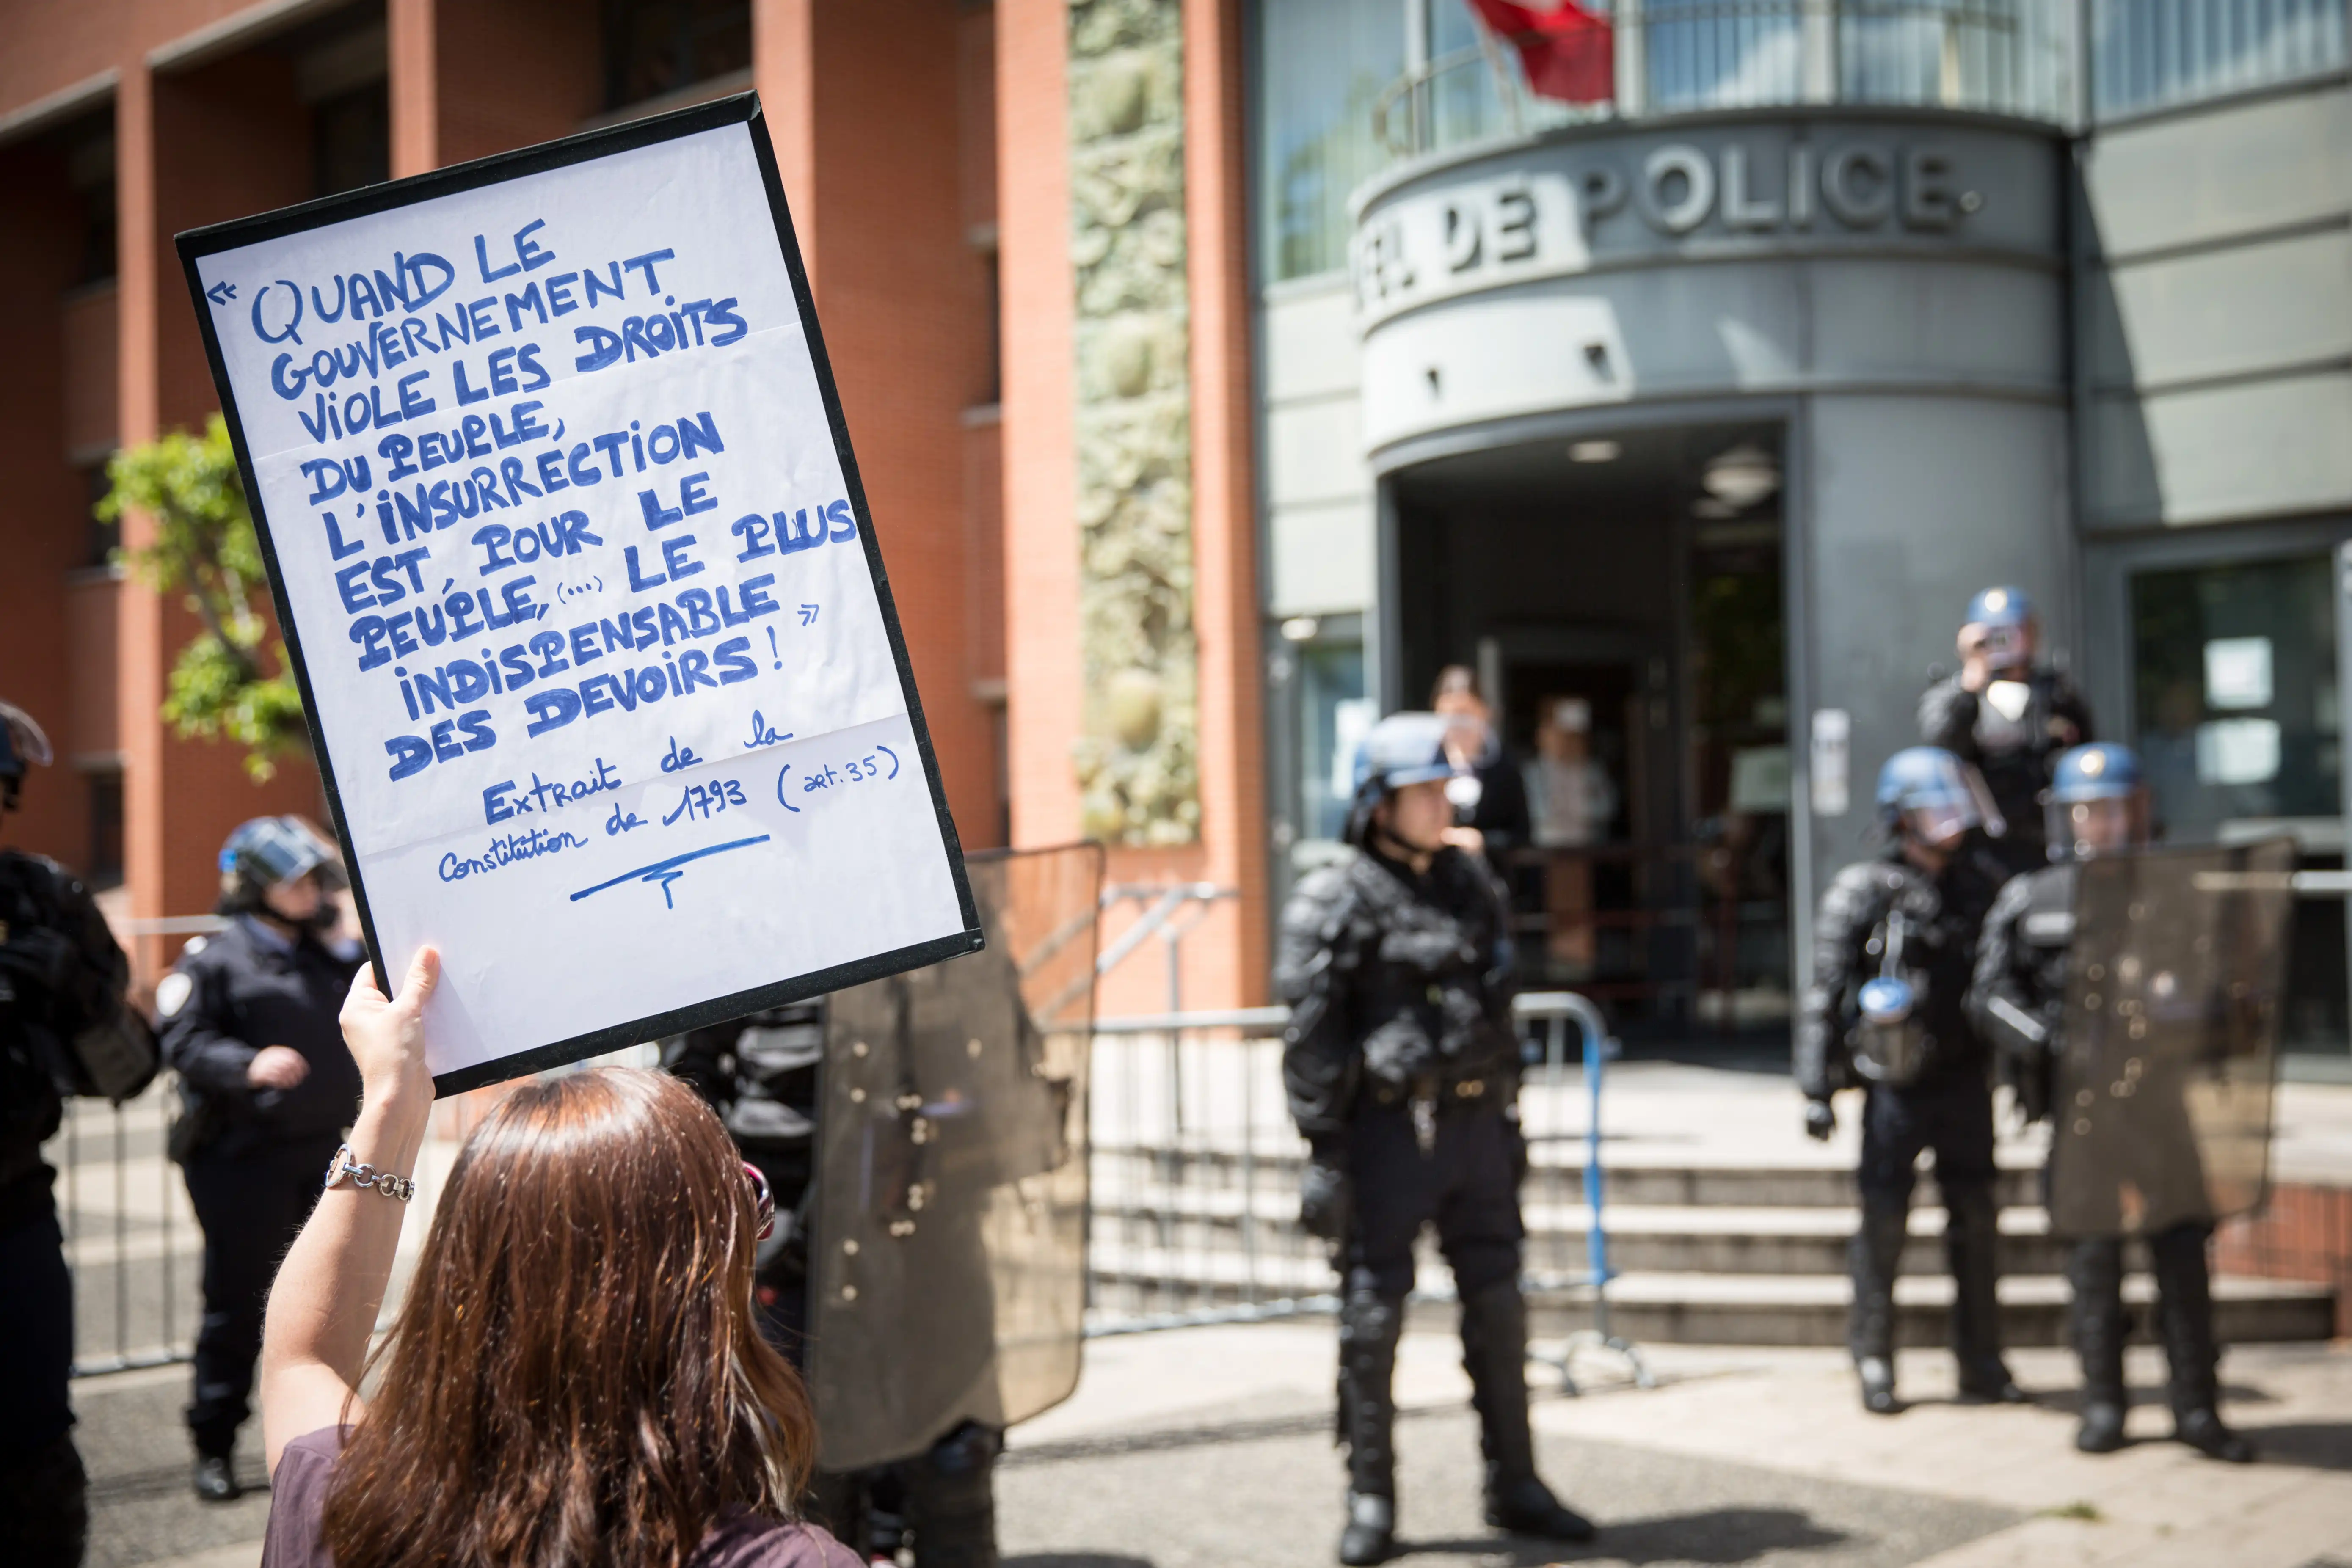 « QUAND LE
GOUVERNEMENT
VIOLE LES DROITS
DU PEUPLE,
L'INSURRECTION
EST, POUR LE
PEUPLE, (...) LE PLUS
INDISPENSABLE
DES DEVOIRS ! »
Extrait de la
Constitution de 1793 (art. 35)
EL DE POLICE